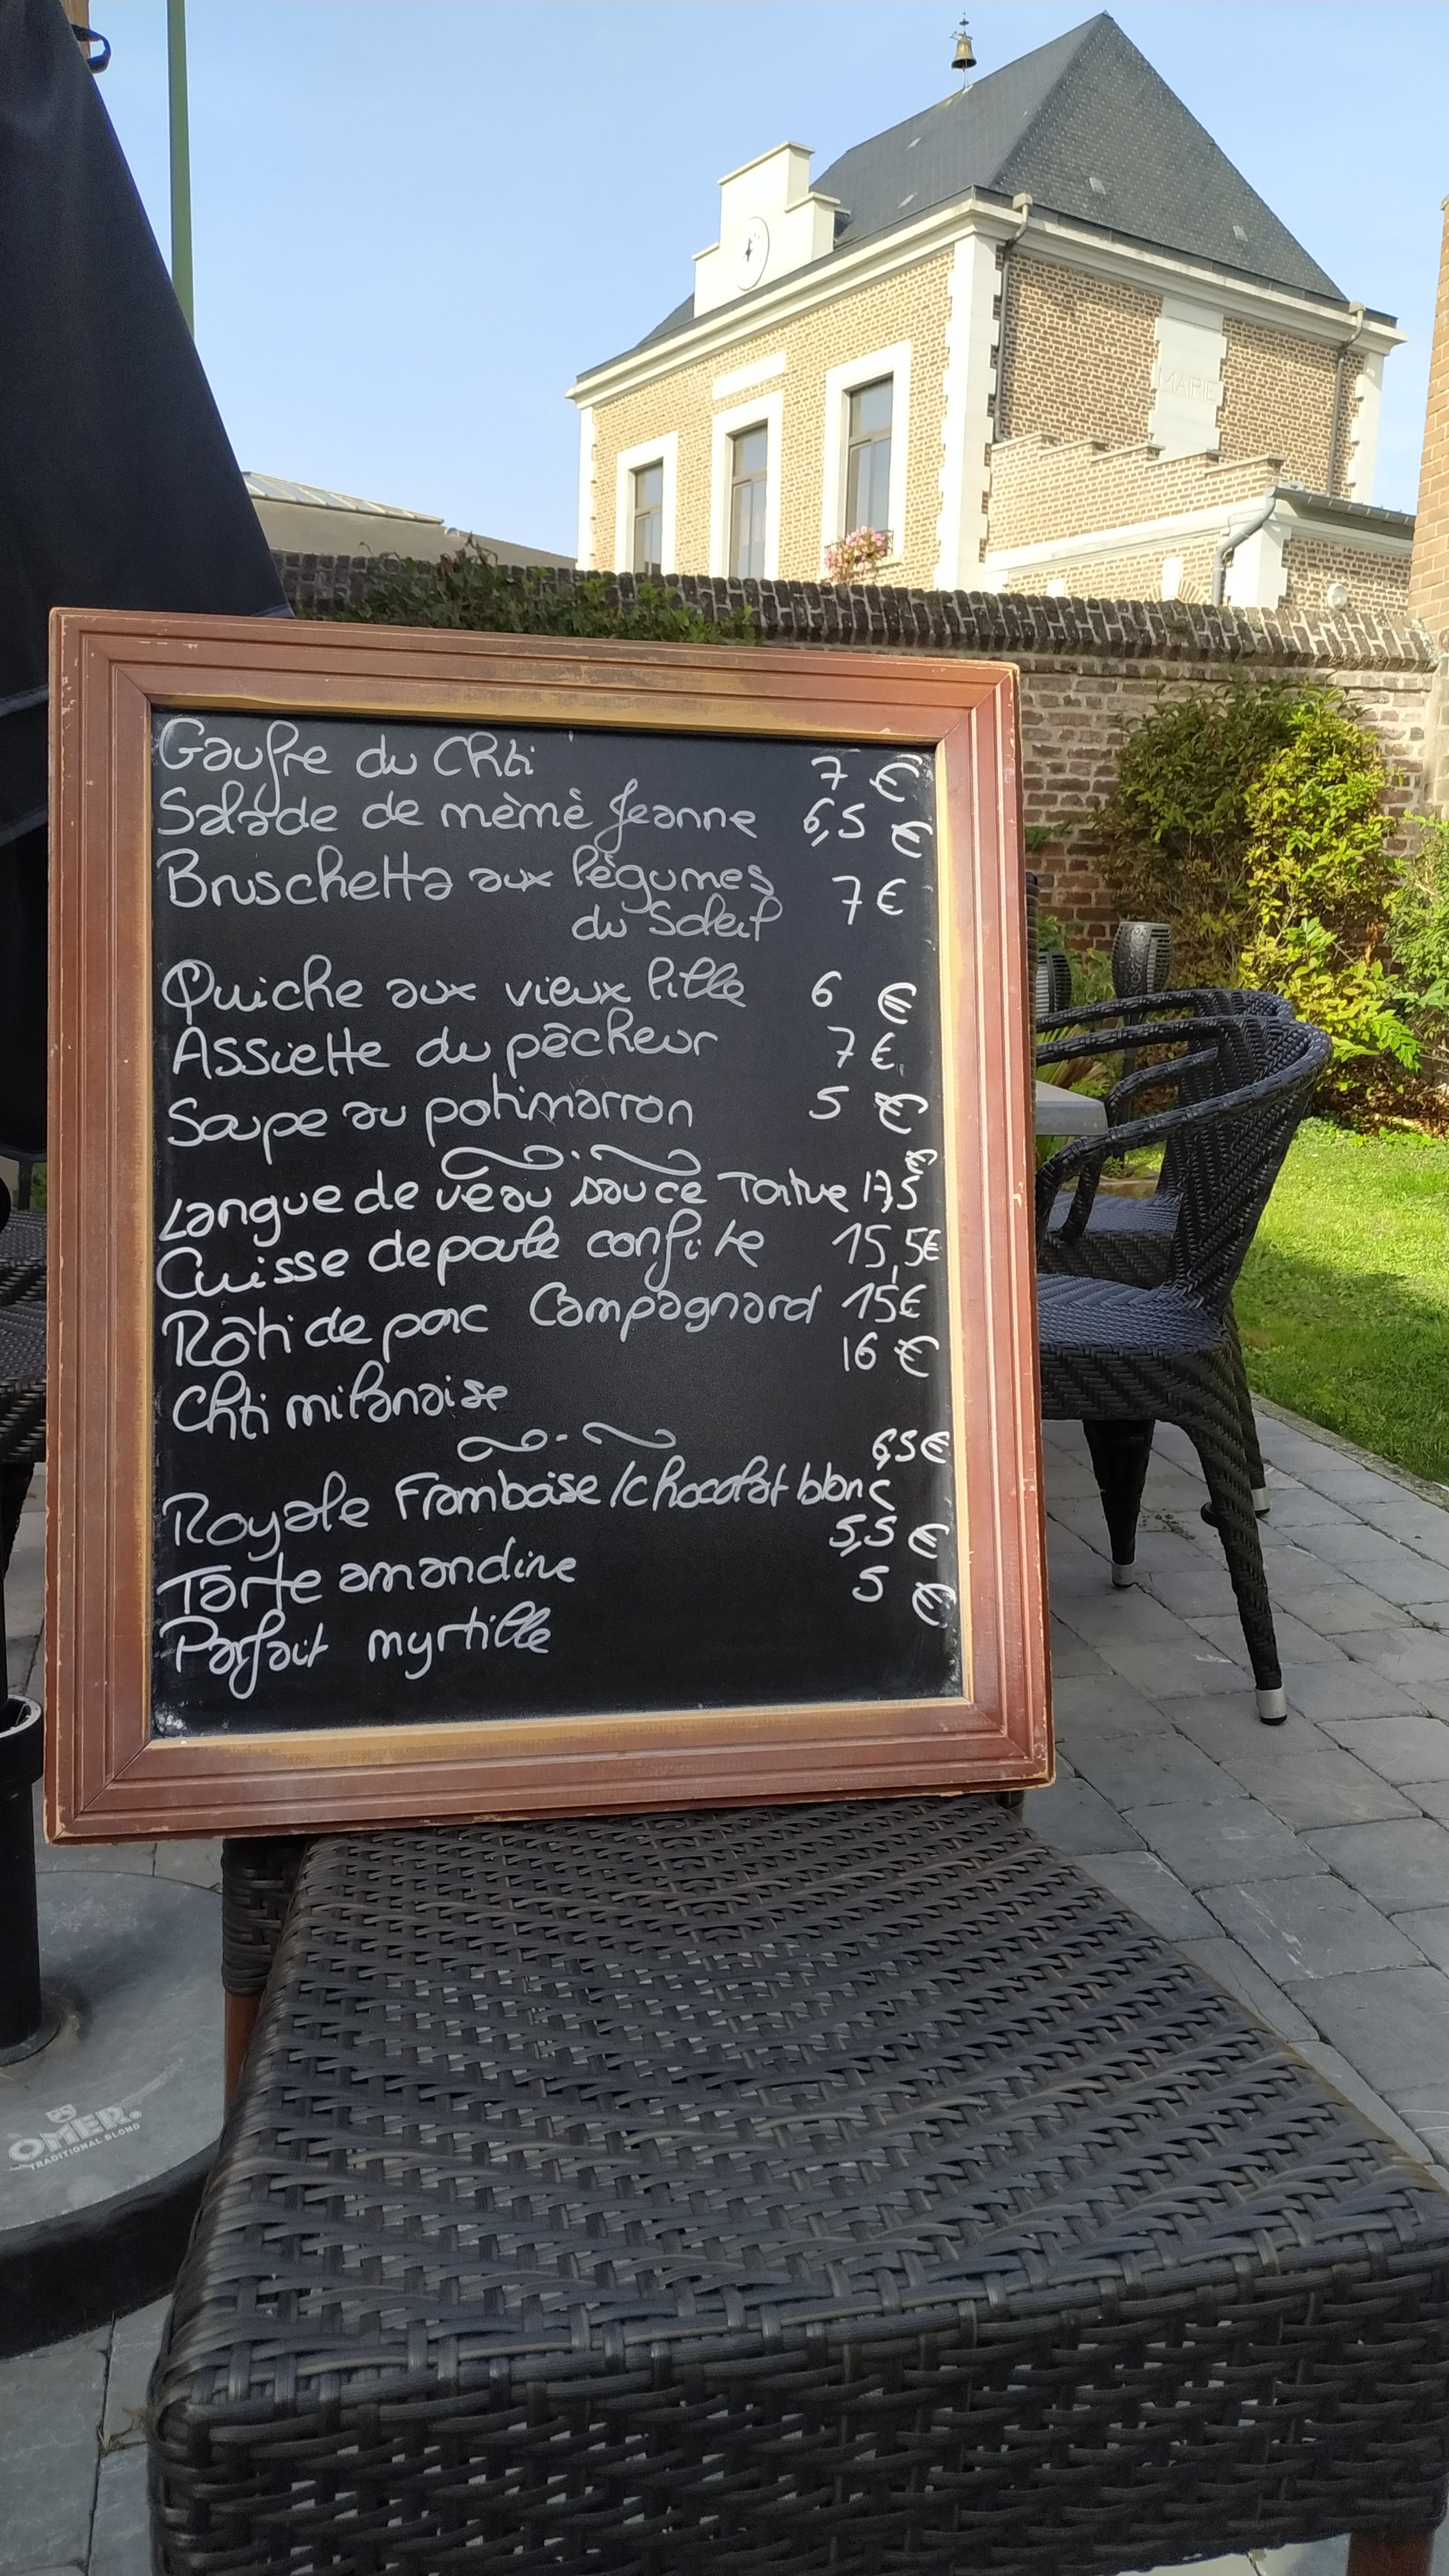 MAIRIE
Gaufre du Chti 7 €
Salade de mèmè Jeanne 6,5 €
Bruschetta aux lègumes 7 €
du Soleil
Quiche aux vieux lille 6 €
Assiette du pêcheur 7 €
Soupe au potimarron 5 €
Langue de veau sauce Tortue 17,5 €
Cuisse de poule confite 15,5€
Rôti de porc Campagnard 15€
Chti milanaise 16 €
Royale Framboise/chocolat blanc 6,5€
Tarte amandine 5,5 €
Parfait myrtille 5 €
OMER.
TRADITIONAL BLOND